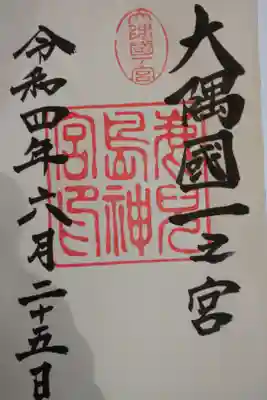 大隅國一之宮
大隅國一宮
鹿児
島神
宮印
令和四年六月二十五日